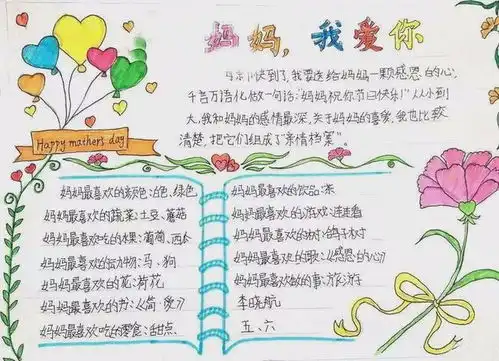 妈妈，我爱你
快到了，我要送给妈妈一颗感恩的心，
千言万语化做一句话："妈妈祝你节日快乐！"从小到
大，我和妈妈的感情最深，关于妈妈的喜爱，我也比较
清楚，把它们组成了"亲情档案"。
Happy mathers day
妈妈最喜欢的颜色：白色、绿色
妈妈最喜欢的蔬菜：土豆、蘑菇
妈妈最喜欢吃的果：葡萄、西
妈妈最喜欢的动物：马、狗
妈妈最喜欢的花：荷花
妈妈最喜欢的书：《简·爱》
妈妈最喜欢吃的零食：甜点
妈妈最喜欢的饮品：茶
妈妈最喜欢的游戏：连连看
妈妈最喜欢的树：鸽子树
妈妈最喜欢的歌：《感恩的心》
妈妈最喜欢做的事：旅游
李晓航
五、六